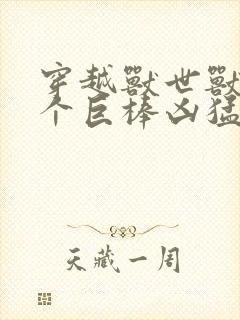 穿越獸世獸
个巨棒凶猛
天藏一周